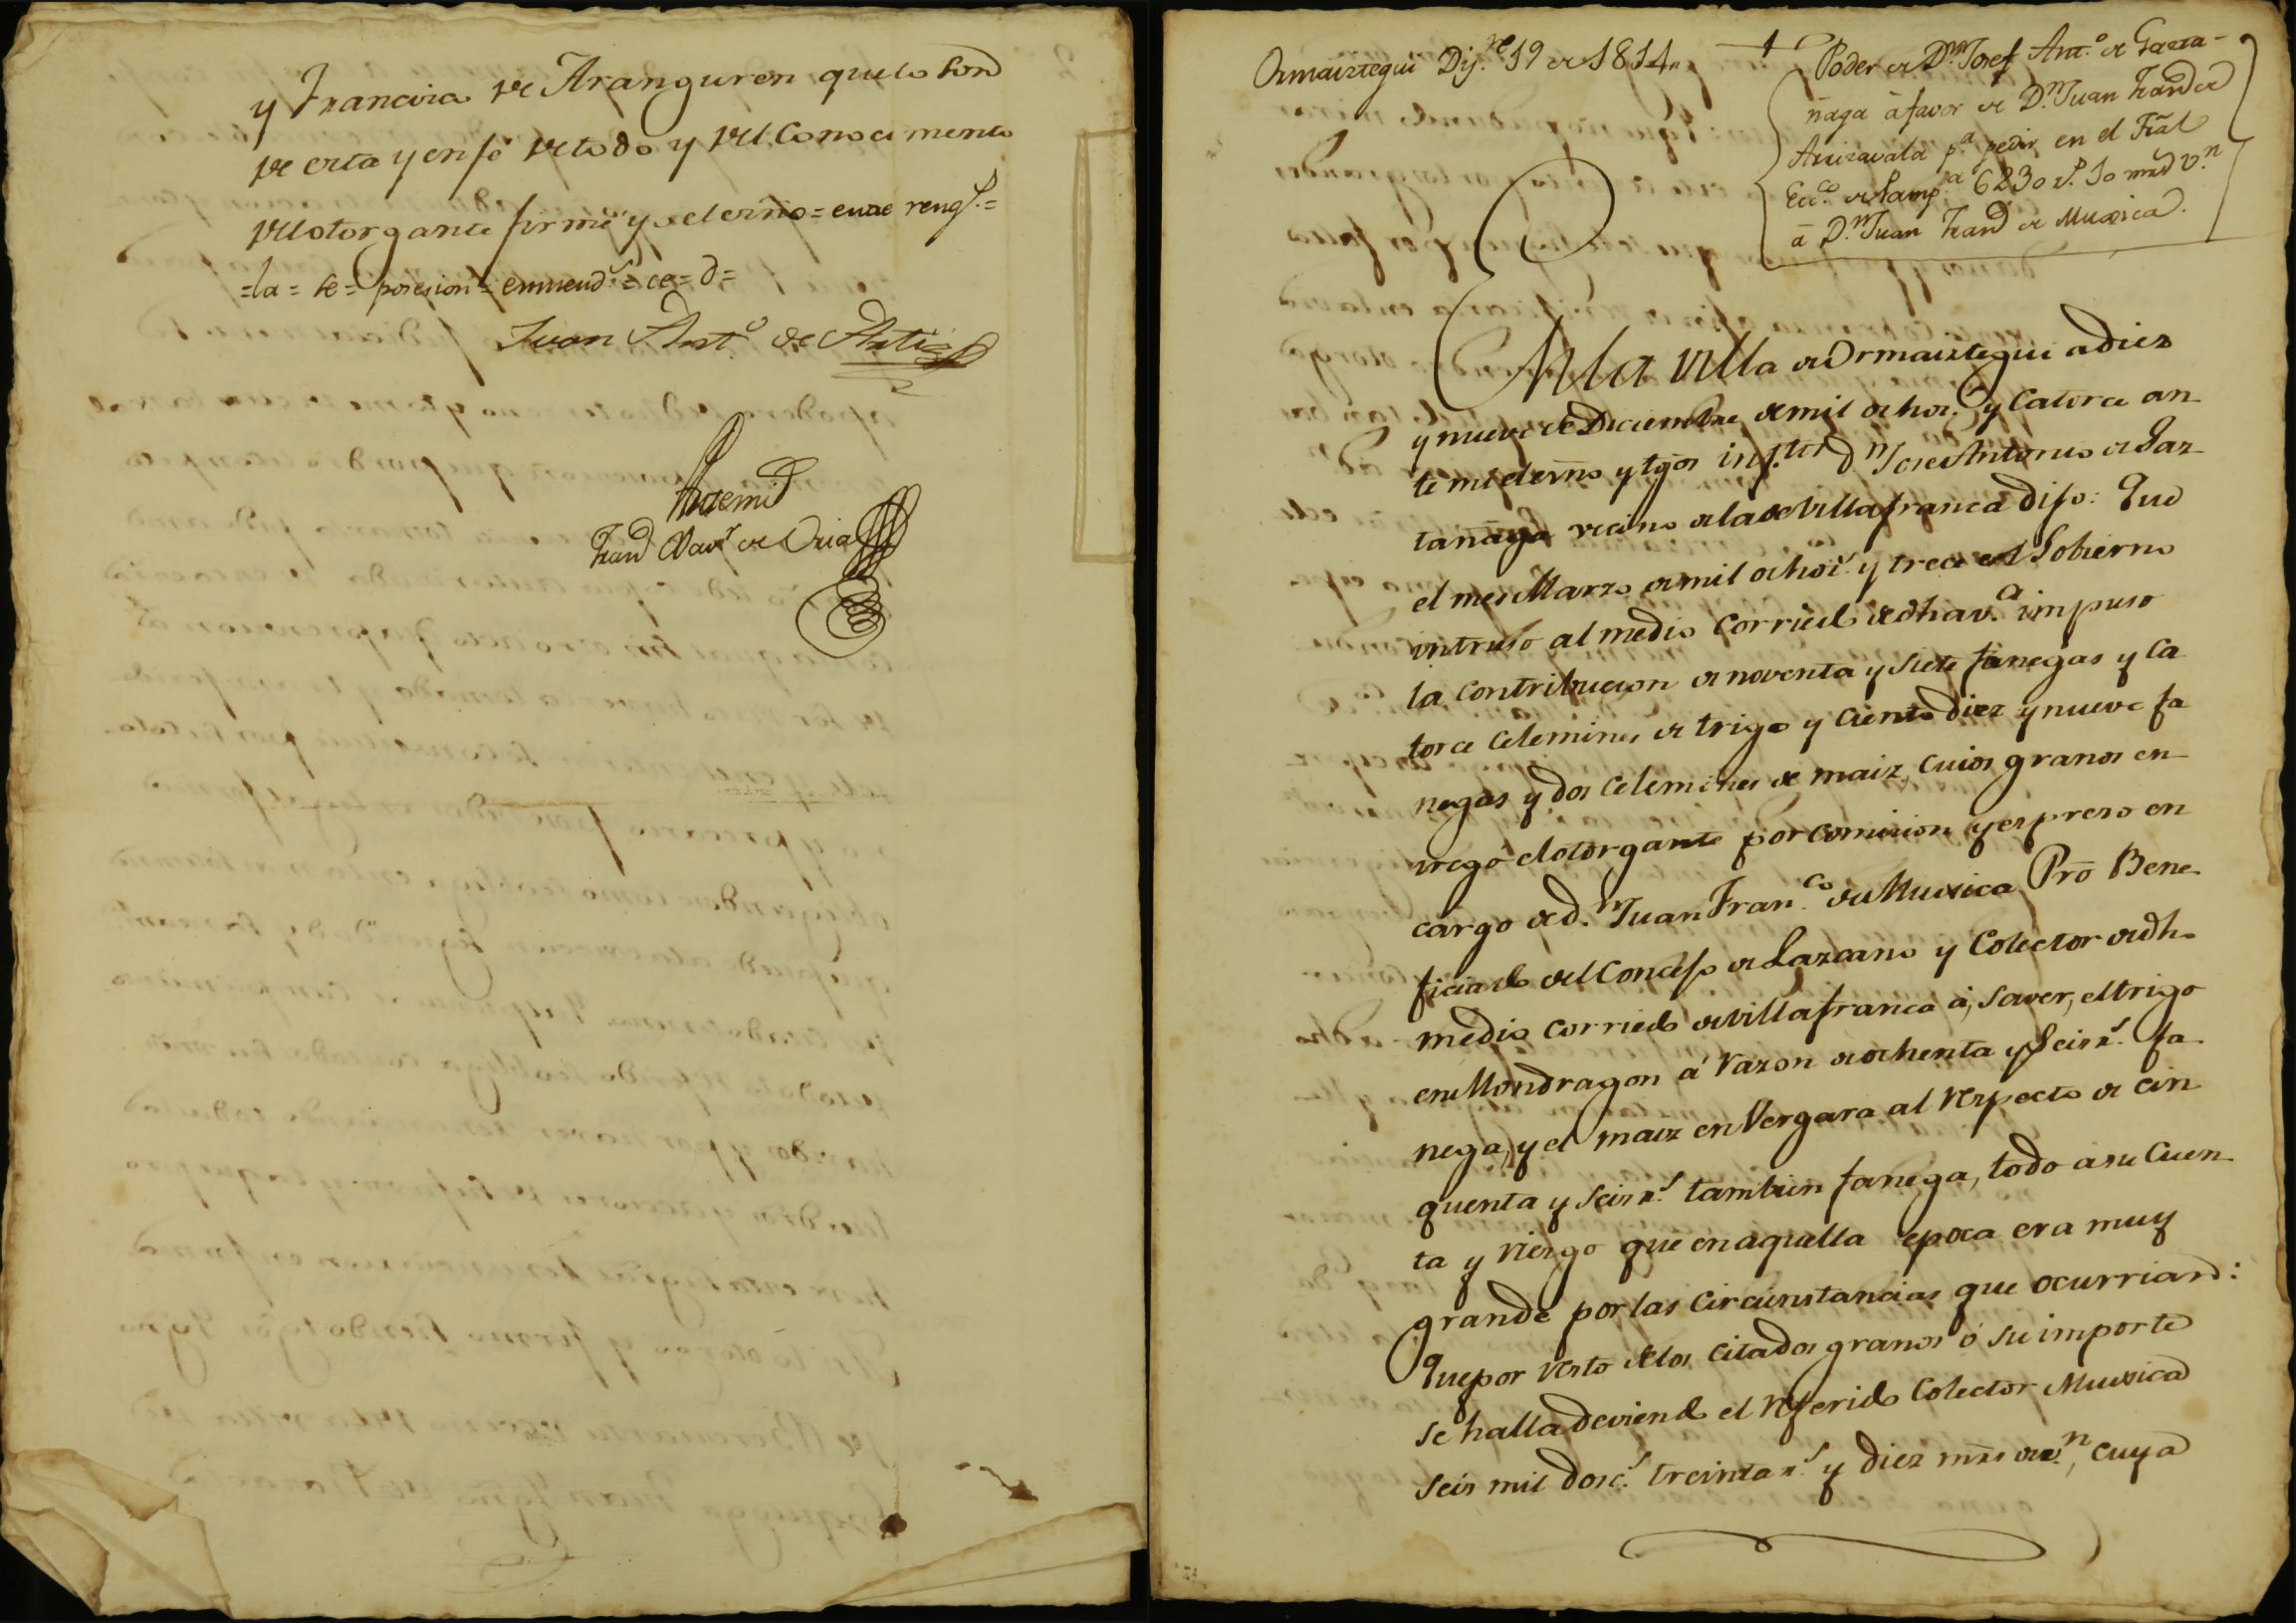 y Francisca de Aranguren que lo son
de esta y en fé de todo y del conocimiento
del otorgante firmé yo el esño = entre rengs. =
= la = se = posesion = enmend.s = ce = d =
Juan Ant.o de Aztiz
Antemi
Fran.co Xav.r de Oria
Ormaiztegui Dij.re 19 de 1814„
Poder de D.n Josef Ant.o de Gazta-
ñaga á favor de D.n Juan Fran.co de
Arrizavala p.a pedir en el Tral
Ecc.o de Pamp.a 6230 r.s 10 mrs v.n
á D.n Juan Fran.co de Muxica.
En la Villa de Ormaiztegui a diez
y nueve de Diciembre de mil ochos. y catorce an
te mi el esño y tgõs inf.tos d.n Jose Antonio de Gaz
tañaga vecino de la de Villafranca dijo: Que
el mes Marzo de mil ochoz.s y trece el Gobierno
intruso al medio corriedo de dha v.a impuso
la contribucion de noventa y siete fanegas y ca
torce celemines de trigo y ciento diez y nueve fa
negas y dos celemines de maiz, cuios granos en
tregó el otorgante por comision y expreso en
cargo de d.n Juan Fran.co de Muxica Pro Bene
ficiado del Concejo de Lazcano y Colector de dho
medio corriedo de villafranca á, saver, el trigo
en Mondragon á razon de ochenta y seis r.s fa
nega, y el maiz en Vergara al respecto de cin
quenta y seis r.s tambien fanega, todo a su cuen
ta y riesgo que en aquella epoca era muy
grande por las circunstancias que ocurrian:
Que por resto de los citados granos ó su importe
se halla deviendo el referido Colector Muxica
seis mil dosc.s treinta r.s y diez mrs de v.n, cuya